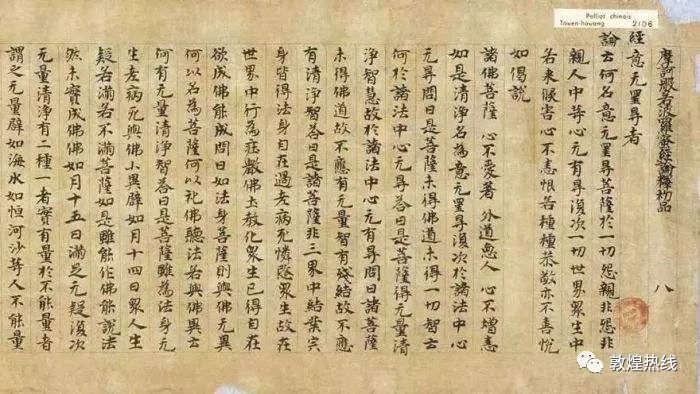 Pelliot chinois
Touen-houang 2106
摩訶般若波羅蜜經論釋初品 八
經 意无罣㝵者
論 云何名意无罣㝵菩薩於一切怨親非怨非
親人中等心无有㝵復次一切世界眾生中
若來侵害心不恚恨若種種恭敬亦不喜悅
如偈說
諸佛菩薩 心不愛著 外道惡人 心不增恚
如是清淨名為意无罣㝵復次於諸法中心
无㝵問曰是菩薩未得佛道未得一切智云
何於諸法中心无㝵答曰是菩薩得无量清
淨智慧故於諸法中心无有㝵問曰諸菩薩
未得佛道故不應有无量智有殘結故不應
有清淨智答曰是諸菩薩非三界中結業宍
身皆得法身自在過老病死憐愍眾生故在
世界中行為莊嚴佛土教化眾生已得自在
欲成佛能成問曰如法身菩薩則與佛无異
何以名為菩薩何以礼佛聽法若與佛異云
何有无量清淨智答曰是菩薩雖為法身无
生老病死與佛小異譬如月十四日眾人生
疑若滿若不滿菩薩如是雖能作佛能說法
然未實成佛佛如月十五日滿足无疑復次
无量清淨有二種一者實有量於不能量者
謂之无量譬如海水如恒河沙等人不能量
敦煌热线